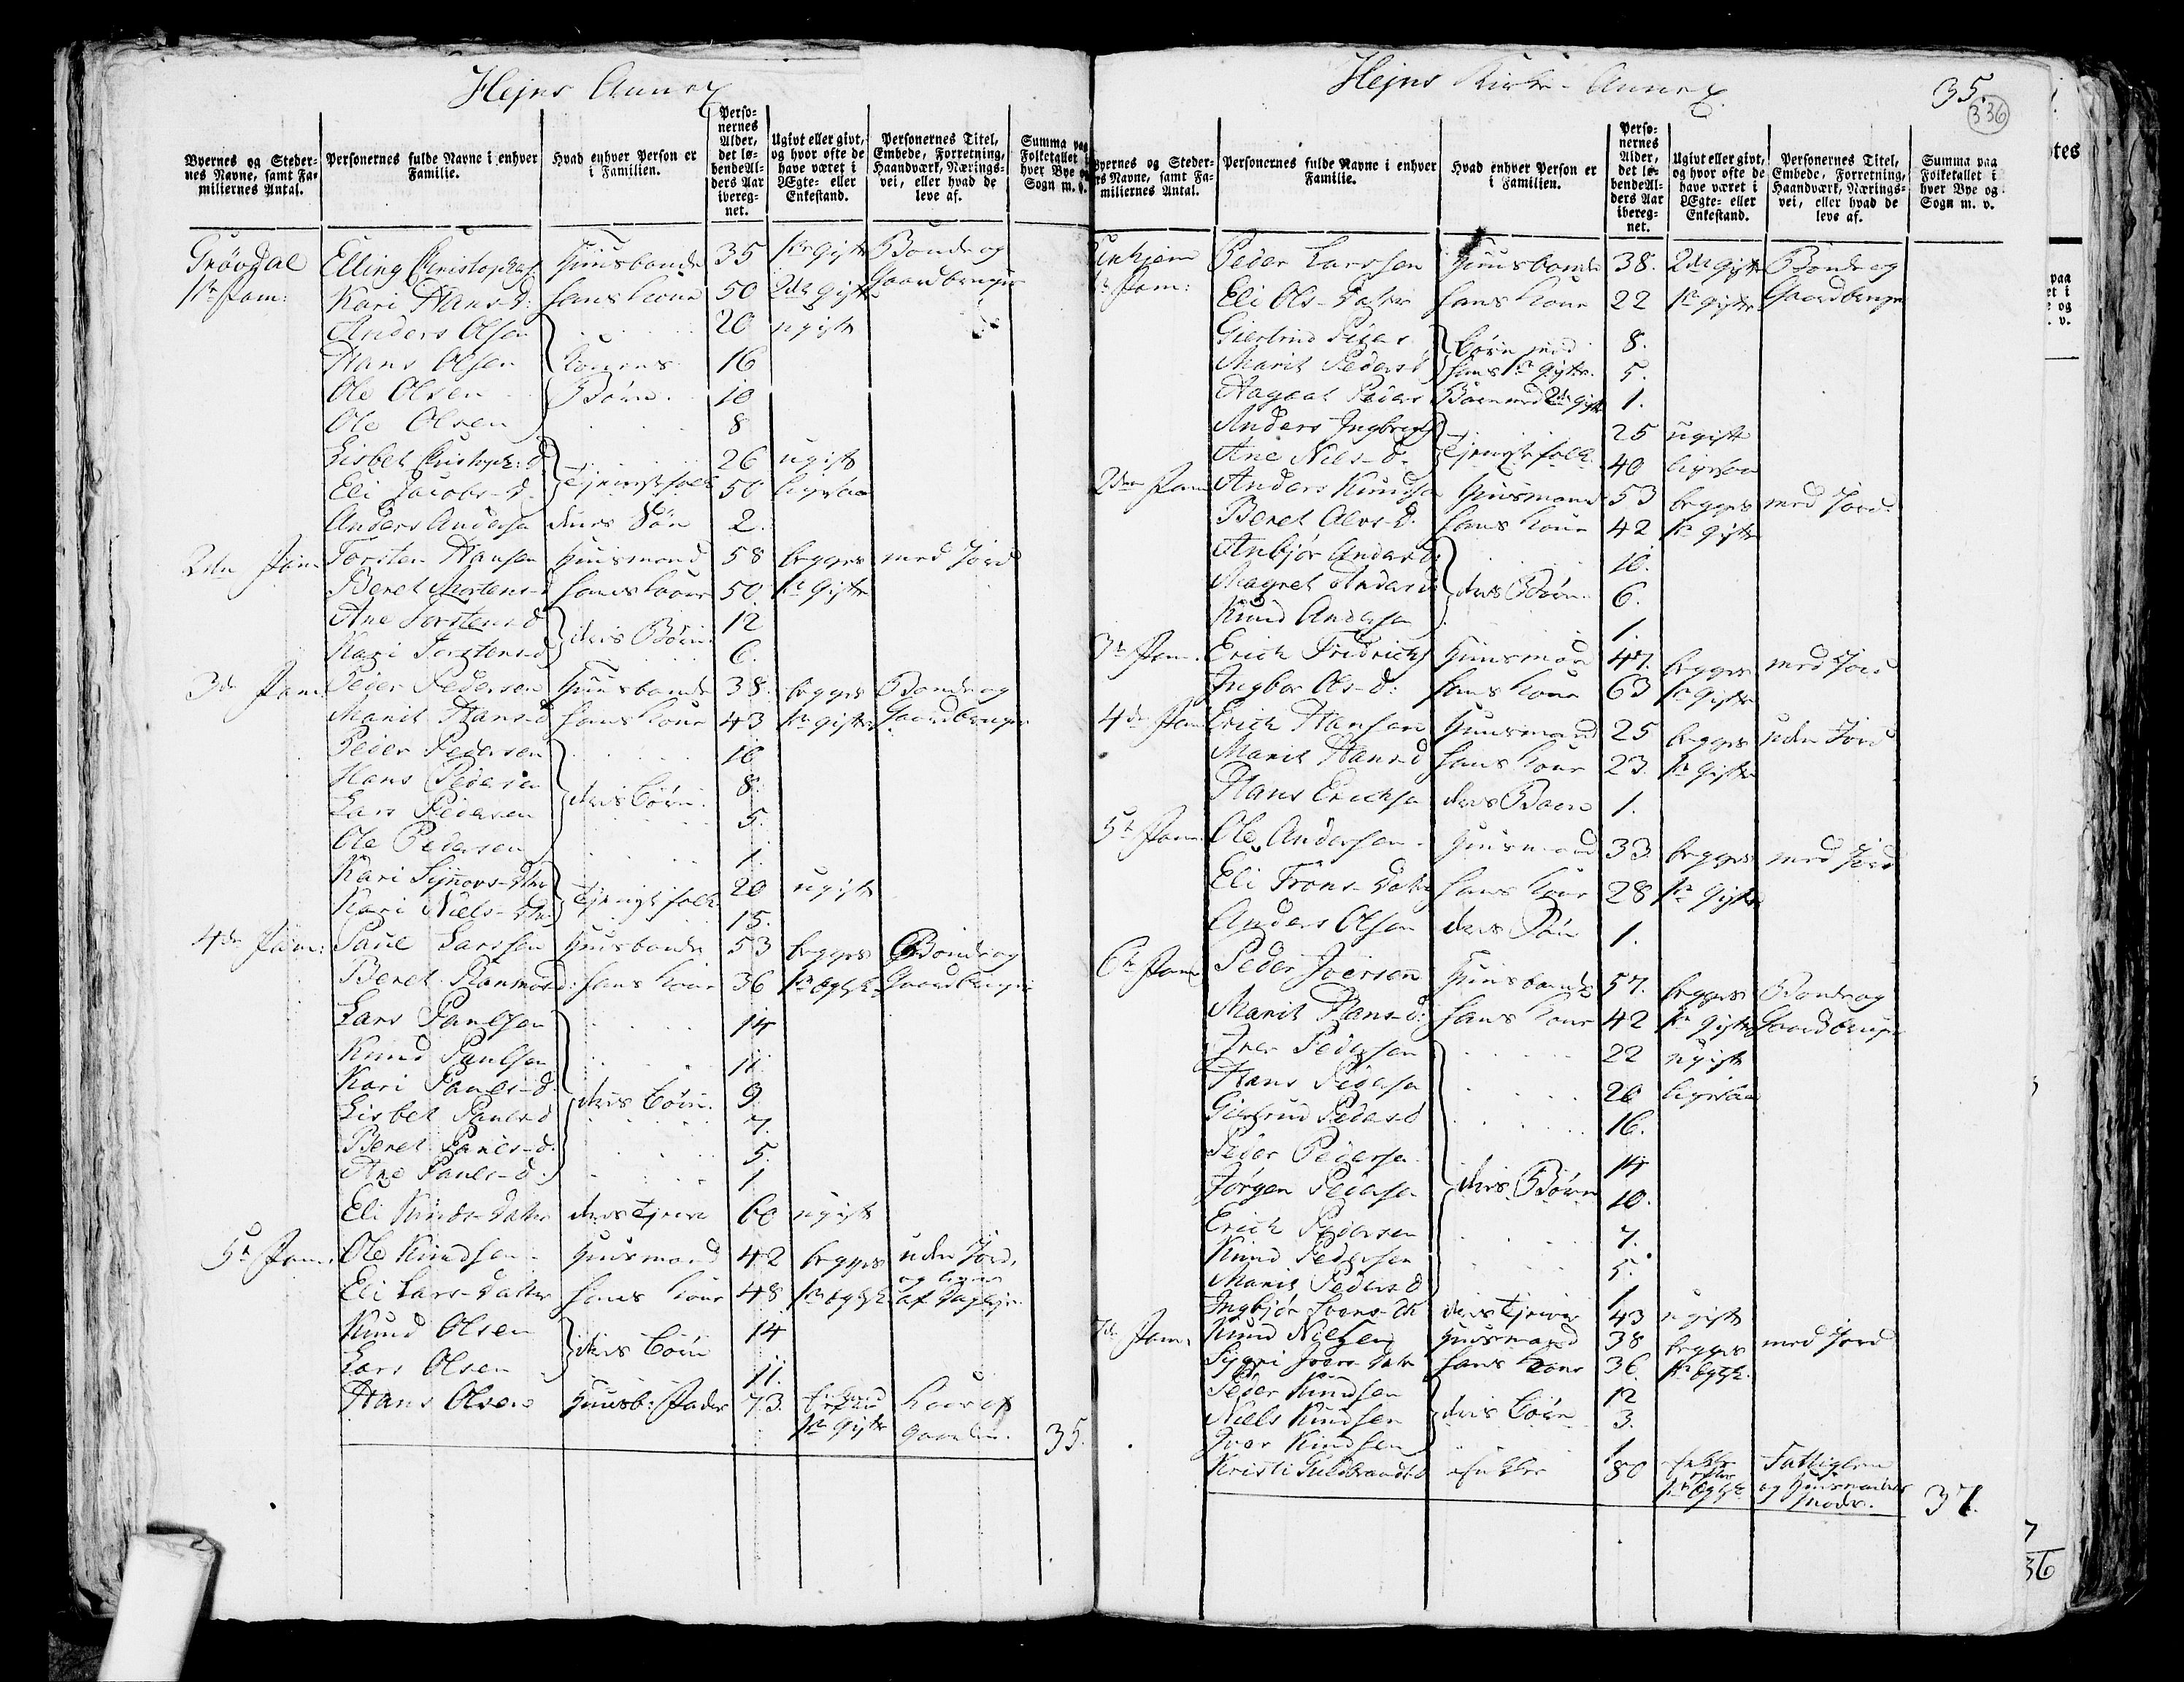 Hejns Annex
Byernes og Steder-
nes Navne, samt Fa-
miliernes Antal.
Personernes fulde Navne i enhver
Familie.
Hvad enhver Person er
i Familien.
Perso-
nernes
Alder,
det lø-
bende Al-
ders Aar
ibereg-
net.
Ugivt eller givt,
og hvor ofte de
have været i
Ægte- eller
Enkestand.
Personernes Titel,
Embede, Forretning,
Haandværk, Nærings-
vei, eller hvad de
leve af.
Summa paa
Folketallet i
hver Bye og
Sogn m. v.
Grøvdal Elling Christophers. Huusbonde 35 1ste Gifte Bonde og
1te Fam: Kari Hans-D: hans Kone 50 2det Gifte Gaardbruger
Anders Olsen 20 ugift
Hans Olsen Konens 16
Ole Olsen Børn 10
Ole Olsen 8
Lisbet Christoph: d 26 ugift
Eli Jacobs-d. Tjenistfolk 50 ligesaa
Anders Andersen deres Søn 2.
2den Fam Torsten Hansen Huusmand 58 begges med Jord
Beret Mortens-d hans Kone 50 1te Gifte
Ane Torstens-d deres Børn 12
Kari Torstens-d 6.
3de Fam Peder Pedersen Huusbonde 38. begges Bonde og
Marit Hans-d hans Kone 43 1te Gifte Gaardbruger
Peder Pedersen 10
Hans Pedersen 8.
Lars Pedersen deres Børn 5.
Ole Pedersen 1.
Kari Sijvers-dtr Tjenistfolk 20 ugift
Kari Niels-dtr. 15.
4de Fam: Paul Larssen Huusbonde 53 begges Bonde og
Beret Ranmods d: hans Kone 36 1te Ægtsk. Gaardbruger
Lars Paulsen 14
Knud Paulsen 11
Kari Pauls-d deres Børn 9.
Lisbet Pauls d 7.
Beret Pauls-d. 5.
Ane Pauls-d. 1
Eli Knuds-datter deres Tjener 60 ugift
5te Fam. Ole Knudsen Huusmand 42 begges uden Jord,
Eli Lars-datter hans Kone 48 1te Ægtsk. og lever af Dagleje.
Knud Olsen deres Børn 14
Lars Olsen 11.
Hans Olsen Huusb: Fader 73. Enkemand
1te Gifte
35.
Hejns Kirke-Annex.
35.
336
Byernes og Steder-
nes Navne, samt Fa-
miliernes Antal.
Personernes fulde Navne i enhver
Familie.
Hvad enhver Person er
i Familien.
Perso-
nernes
Alder,
det lø-
bende Al-
ders Aar
ibereg-
net.
Ugivt eller givt,
og hvor ofte de
have været i
Ægte- eller
Enkestand.
Personernes Titel,
Embede, Forretning,
Haandværk, Nærings-
vei, eller hvad de
leve af.
Summa paa
Folketallet i
hver Bye og
Sogn m. v.
Peder Larssen Huusbonde 38. 2det Gifte Bonde og
1te Fam: Eli Ols-Datter hans Kone 22 1te Gifte Gaardbruger
Giertrud Peders Børn med 8.
Marit Peders d hans 1te Gifte. 5.
Aagaat Peders Barn med 2det Gifte 1.
Anders Ingbrigts 25 ugift
Ane Niels-d. Tjenistfolk. 40 ligesaa
2den Fam Anders Knudsen Huusmand 53 begges med Jord.
Beret Alvs-d. hans Kone 42 1te Gifte
Anbjør Anders d 10.
Magret Anders d deres Børn. 6.
Knud Andersen 1.
3de Fam. Erich Fridrichs Huusmand 47. begges med Jord
Ingbor Ols-d: hans Kone 63 1te Gifte
4de Fam Erich Hansen Huusmand 25 begges uden Jord
Marit Hans-d hans Kone 23. 1te Gifte
Hans Erichsen deres Barn 1.
5te Fam. Ole Andersen Huusmand 33. begges med Jord
Eli Trons-datter hans Kone 28 1te Gifte
Anders Olsen deres Søn 1.
6te Fam Peder Iversen Huusbonde 57. begges Bonde og
Marit Hans-d: hans Kone 42 1te Gifte Gaardbruger
Iver Pedersen 22 ugift
Hans Pedersen 20 ligesaa
Giertrud Peders d 16.
Peder Pedersen 14
Jørgen Pedersen deres Børn 10.
Erich Pedersen 7.
Knud Pedersen 5.
Marit Peders d 1
Ingbjør Ivers-dtr deres Tjener 43 ugift
7de Fam. Knud Nielsen Huusmand 38 begges med Jord
Sygni Ivers datter hans Kone 36 1te Ægtsk.
Peder Knudsen 12
Niels Knudsen deres Børn 3.
Iver Knudsen 1
Kristi Guldbrands d Enkke 80 Enkke Fattiglem
efter og Huusmandens
1te Ægtsk. Moder.
37.
7
36